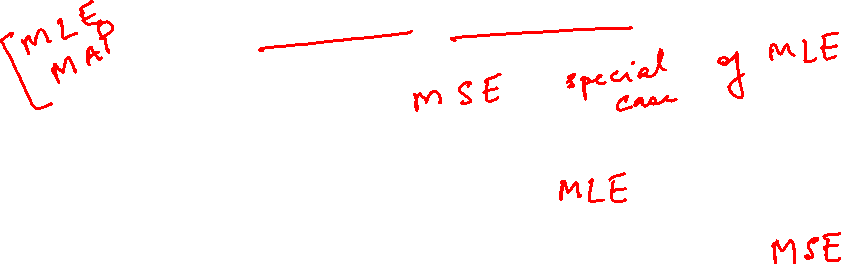 MLE
MAP
MSE special case of MLE
MLE
MSE